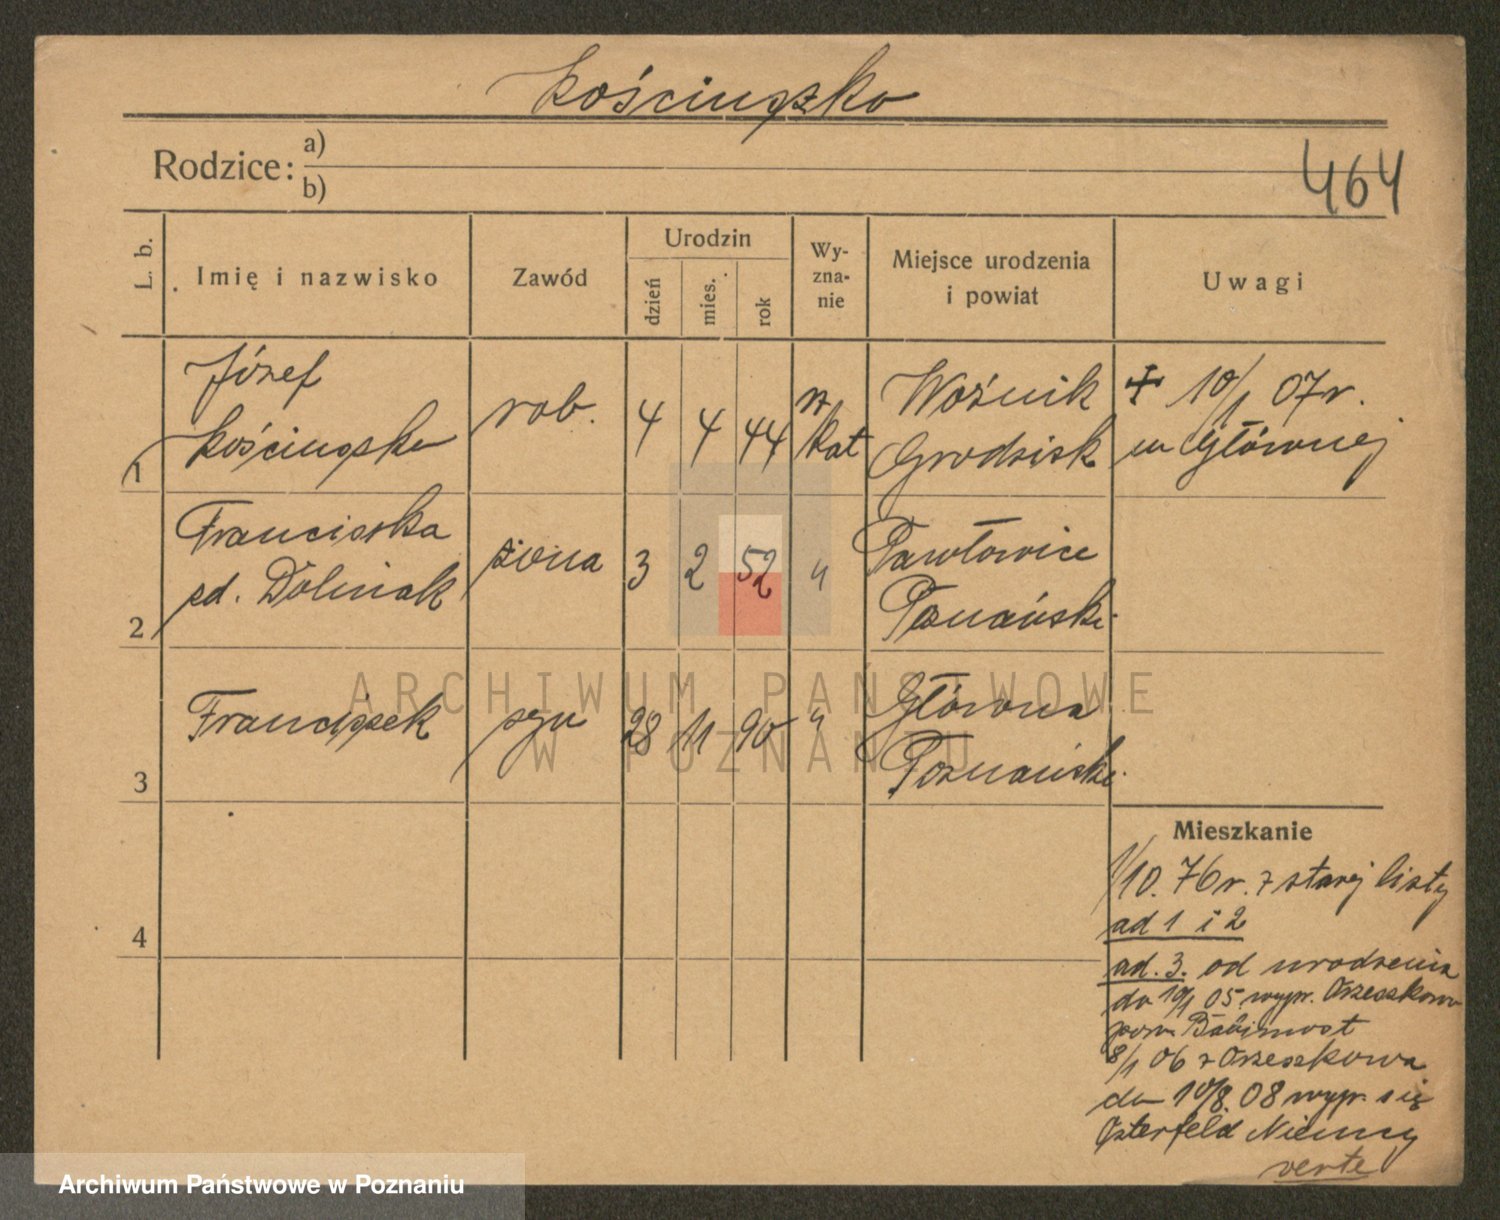 Kościuszko
Rodzice: a)
b)
464
L. b.
Imię i nazwisko
Zawód
Urodzin
dzień
mies.
rok
Wy-
zna-
nie
Miejsce urodzenia
i powiat
Uwagi
1
Józef
Kościuszko
rob.
4
4
44
rz
Kat
Woźnik
Grodzisk
+ 10/1 07 r.
w Głównej
2
Franciszka
zd. Doliniak
żona
3
2
52
"
Pawłowice
Poznański
3
Franciszek
syn
28
11
90
"
Główna
Poznański
4
Mieszkanie
1/10. 76 r. z starej listy
ad 1 i 2
ad. 3. od urodzenia
do 10/1 05. wypr. Orzeszkowo
pow. Babimost
8/1 06 z Orzeszkowa
do 10/8. 08 wypr. się
Osterfeld Niemcy
verte
ARCHIWUM PAŃSTWOWE
W POZNANIU
Archiwum Państwowe w Poznaniu